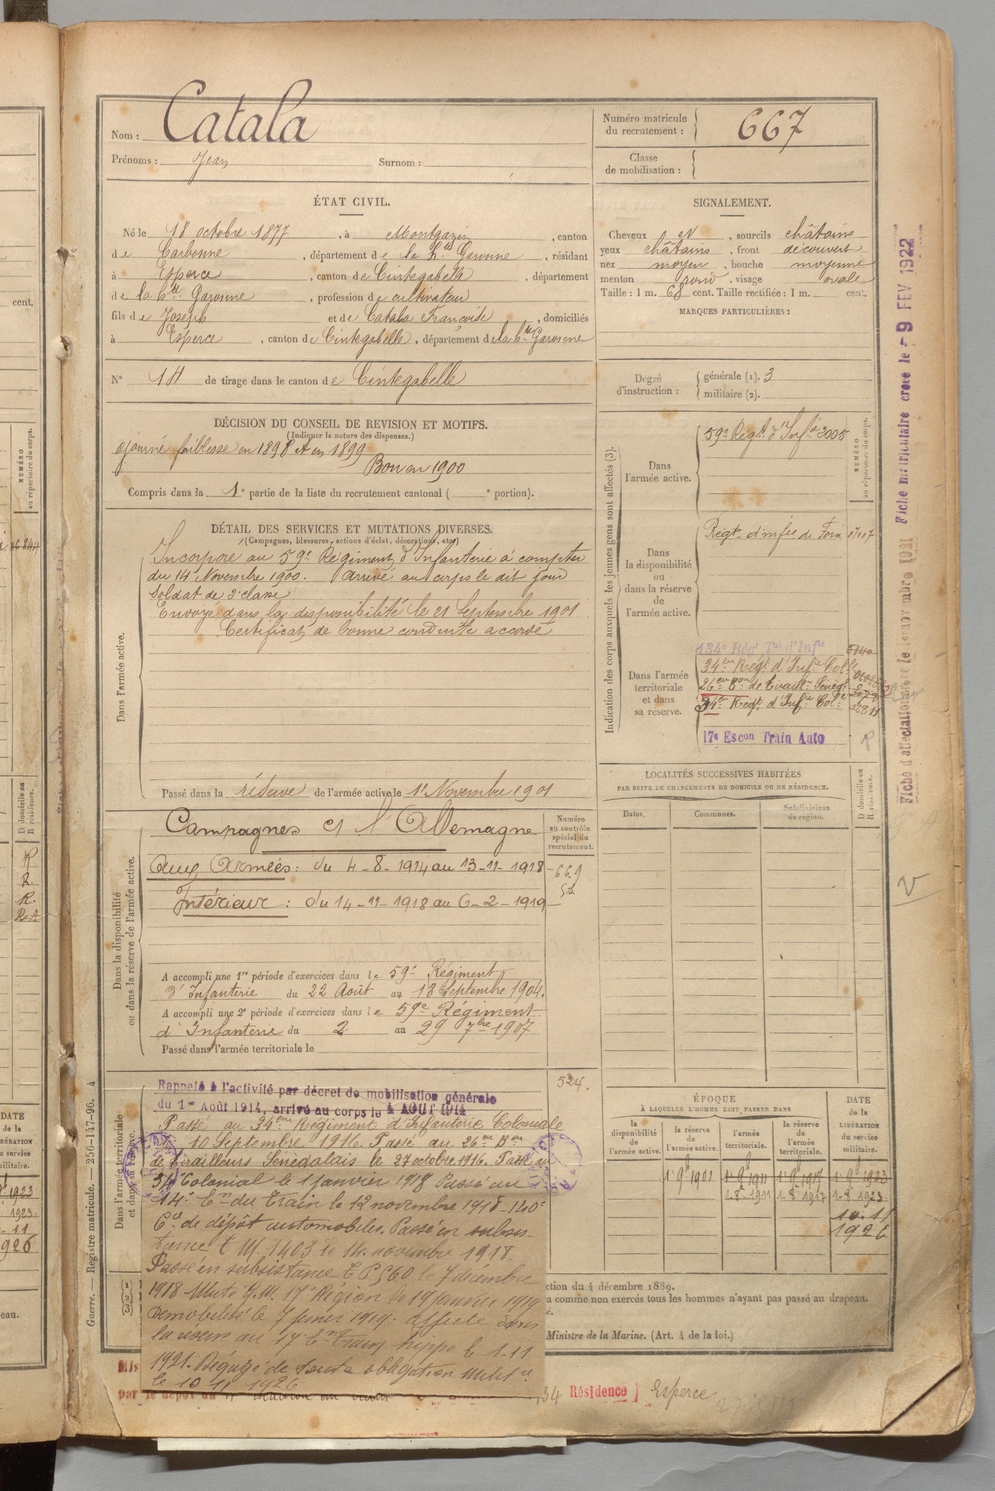 Nom : Catala
Prénoms : Jean Surnom :
Numéro matricule du recrutement : 667
Classe de mobilisation :
ÉTAT CIVIL.
Né le 18 octobre 1877, à Montgazin, canton
de Carbonne, département de la Hte Garonne, résidant
à Esperce, canton de Cintegabelle, département
de la Hte Garonne, profession de cultivateur
fils de Joseph et de Catala Françoise, domiciliés
à Esperce, canton de Cintegabelle, département de la Hte Garonne
N° 14 de tirage dans le canton de Cintegabelle
SIGNALEMENT.
Cheveux et, sourcils châtains
yeux châtains, front découvert
nez moyen, bouche moyenne
menton rond, visage ovale
Taille : 1 m. 68 cent. Taille rectifiée : 1 m. cent.
MARQUES PARTICULIÈRES :
Degré d'instruction : générale (1). 3
militaire (2).
DÉCISION DU CONSEIL DE REVISION ET MOTIFS.
(Indiquer la nature des dispenses.)
ajourné faiblesse en 1898 et en 1899
Bon en 1900
Compris dans la 1e partie de la liste du recrutement cantonal ( e portion).
DÉTAIL DES SERVICES ET MUTATIONS DIVERSES.
(Campagnes, blessures, actions d'éclat, décorations, etc.)
Dans l'armée active.
Incorporé au 59e Régiment d'Infanterie à compter
du 14 Novembre 1900. Arrivé au corps le dit jour
Soldat de 2e classe
Envoyé dans la disponibilité le 21 Septembre 1901
Certificat de bonne conduite accordé
Passé dans la réserve de l'armée active le 1r Novembre 1901
Dans la disponibilité ou dans la réserve de l'armée active.
Campagnes ct l'Allemagne
Aux Armées : du 4-8-1914 au 13-11-1918
Intérieur : du 14-11-1918 au 6-2-1919
Numéro au contrôle spécial du recrutement.
669
A accompli une 1re période d'exercices dans le 59e Régiment
d'Infanterie du 22 Août au 18 Septembre 1904.
A accompli une 2e période d'exercices dans le 59e Régiment
d'Infanterie du 2 au 29 7bre 1907
Passé dans l'armée territoriale le
524.
Dans l'armée territoriale et dans sa réserve.
Rappelé à l'activité par décret de mobilisation générale
du 1er Août 1914, arrivé au corps le 4 AOUT 1914
Passé au 34eme Régiment d'Infanterie Coloniale
10 Septembre 1916. Passé au 26eme Bon
de Tirailleurs Sénégalais le 27 octobre 1916. Passé au
34e Colonial le 1 janvier 1918 Passé au
14e Em du Train le 12 novembre 1918 - 140e
Cie de dépôt automobiles. Passé en subsis-
tance T M 1403 le 14 novembre 1918
Passé en subsistance le 7 décembre
1918 Muté 17e Région le 19 janvier 1919
Démobilisé le 7 février 1919. Affecté dans
la réserve au 17 Em Train hippo le 1.11
1921. Dégagé de toute obligation militre
le 10 11 1926
Indication des corps auxquels les jeunes gens sont affectés (3).
NUMÉRO au répertoire du corps.
Dans l'armée active.
59e Régt d'Infie 3005
Dans la disponibilité ou dans la réserve de l'armée active.
Régt d'infie de Foix
Dans l'armée territoriale et dans sa réserve.
134e Rég. Tal d'Infie
34eme Régt d'Infie Cole
26eme Bon de Tiraill. Sénégl.
34e Régt d'Infie Col.
17e Escon Train Auto
LOCALITÉS SUCCESSIVES HABITÉES
PAR SUITE DE CHANGEMENTS DE DOMICILE OU DE RÉSIDENCE.
Dates. Communes. Subdivisions de région.
D domicile ou R résidence.
ÉPOQUE
À LAQUELLE L'HOMME DOIT PASSER DANS
DATE de la LIBÉRATION du service militaire.
la disponibilité de l'armée active. la réserve de l'armée active. l'armée territoriale. la réserve de l'armée territoriale.
1r 9bre 1901 1r 9bre 1911 1r 9bre 1917 1r 9bre 1923
1.8.1911 1.8.1917 1.8.1923
10.11
1926
ction du 4 décembre 1889.
a comme non exercés tous les hommes n'ayant pas passé au drapeau.
Ministre de la Marine. (Art. 4 de la loi.)
Résidence Esperce
Fiche d'affectation crée le 1er novembre 1921 Fiche matriculaire créée le - 9 FEV 1922
Guerre. — Registre matricule. — 256-147-96. 4
cent.
DATE
1923
1923.